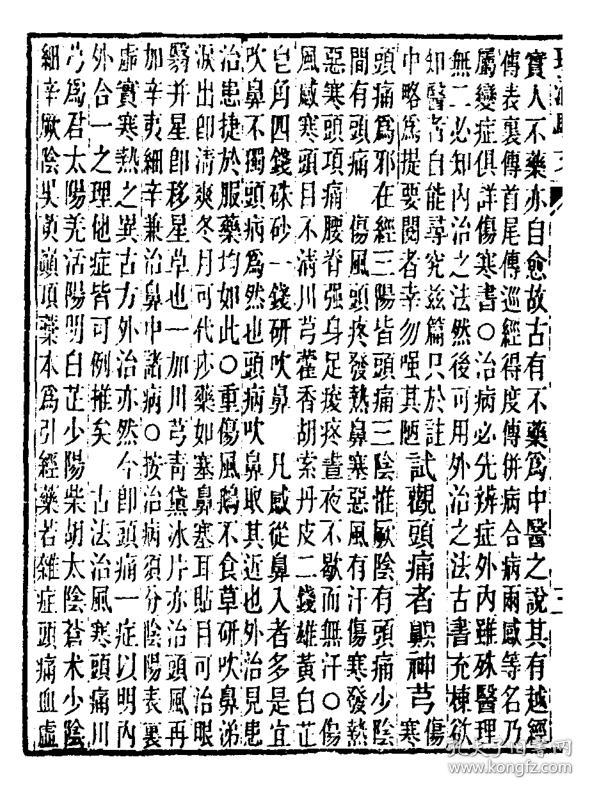 實人不藥亦自愈故古有不藥為中醫之說其有越經
傳表裏傳首尾傳巡經得度傳併病合病兩感等名乃
屬變症俱詳傷寒書○治病必先辨症外內雖殊醫理
無二必知內治之法然後可用外治之法古書充棟欲
知醫者自能尋究茲篇只於註
中略為提要閱者幸勿嗤其陋
試觀頭痛者神芎
傷
寒
頭痛為邪在經三陽皆頭痛三陰惟厥陰有頭痛少陰
間有頭痛 傷風頭疼發熱鼻塞惡風有汗傷寒發熱
惡寒頭項痛腰脊强身足痠疼晝夜不歇而無汗○傷
風感寒頭目不清川芎藿香胡索丹皮二錢雄黃白芷
皂角四錢硃砂一錢研吹鼻 凡感從鼻入者多是宜
吹鼻不獨頭病為然也頭病吹鼻取其近也外治見患
治患捷於服藥均如此○重傷風鵝不食草研吹鼻涕
淚出即清爽冬月可代痧藥如塞鼻塞耳貼目可治眼
翳并星即移星草也一加川芎青黛冰片亦治頭風再
加辛夷細辛兼治鼻中諸病○按治病須分陰陽表裏
虛實寒熱之異古方外治亦然今即頭痛一症以明內
外合一之理他症皆可例推矣 古法治風寒頭痛川
芎為君太陽羌活陽明白芷少陽柴胡太陰蒼朮少陰
細辛厥陰吳萸巔頂藁本為引經藥若雜症頭痛血虛
孔夫子旧书网
book.kongfz.com